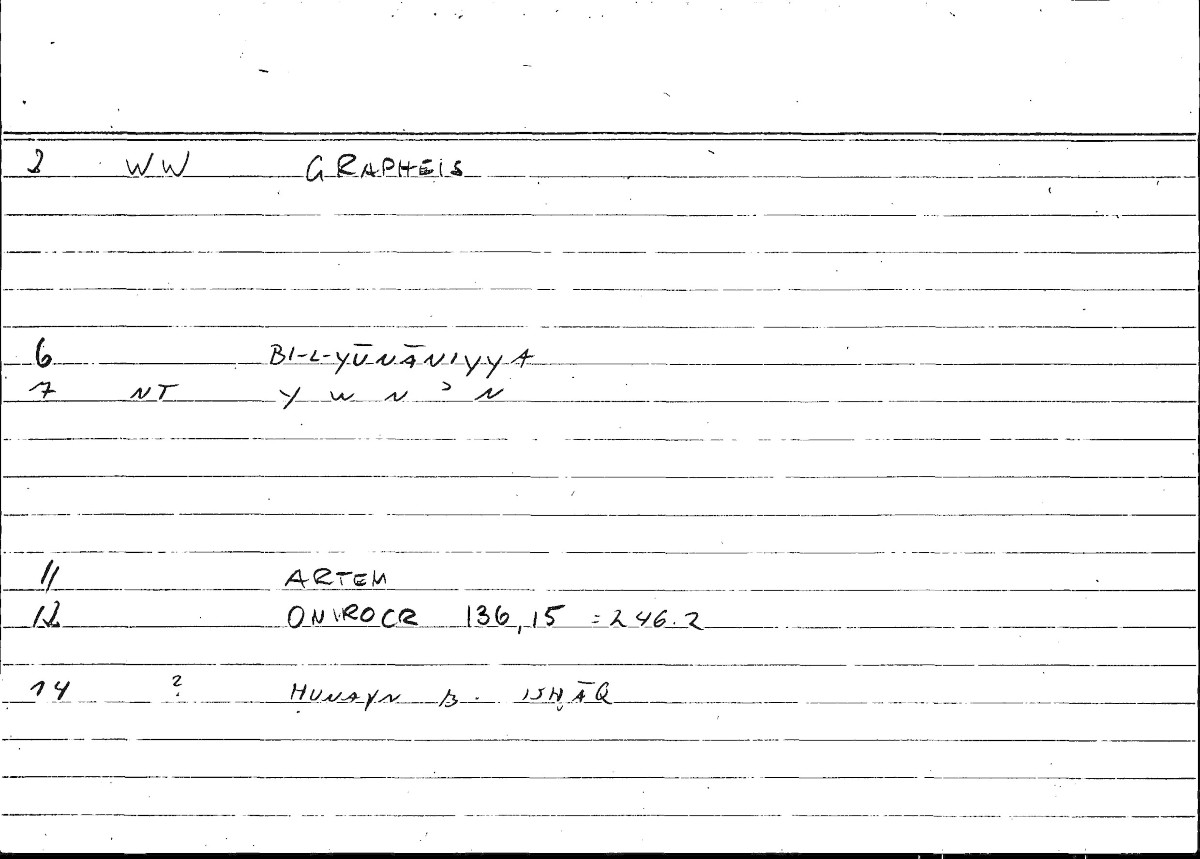 2 WW GRAPHEIS
6 BI-L-YŪNĀNIYYA
7 NT Y W N ʾ N
11 ARTEM
12 ONIROCR 136,15 = 246.2
14 ? ḤUNAYN B. ISḤĀQ